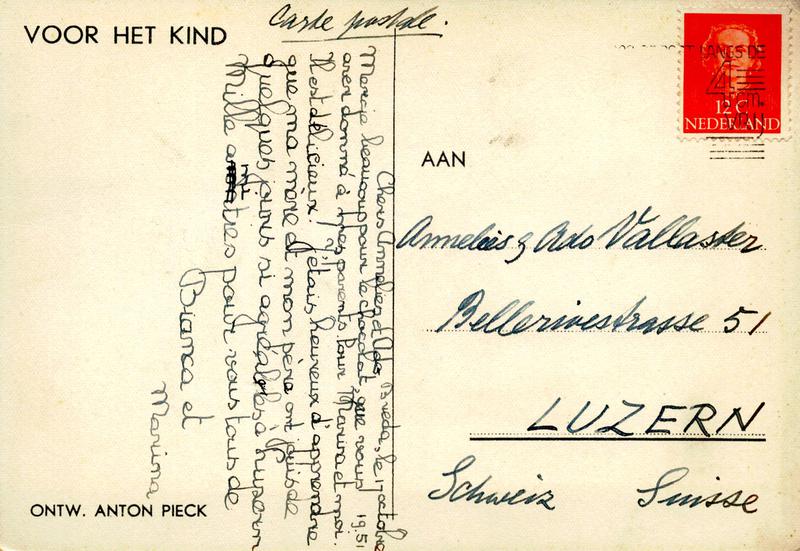 VOOR HET KIND
Carte postale.
LANGS DE
4
12 C
NEDERLAND
AAN
Annelies & Ado Vallaster
Bellerivestrasse 51
LUZERN
Schweiz Suisse
Breda, le 17 octobre
1951
Chers Annelies et Ado
Mercie beaucoup pour le chocolat, que vous
avez donné à mes parents pour Marina et moi.
Il est délicieux. J'étais heureux d'apprendre
que ma mère et mon père ont jouis de
quelques jours si agréables à Luzern
Mille amitiés pour vous tous de
Bianca et
Marina
ONTW. ANTON PIECK